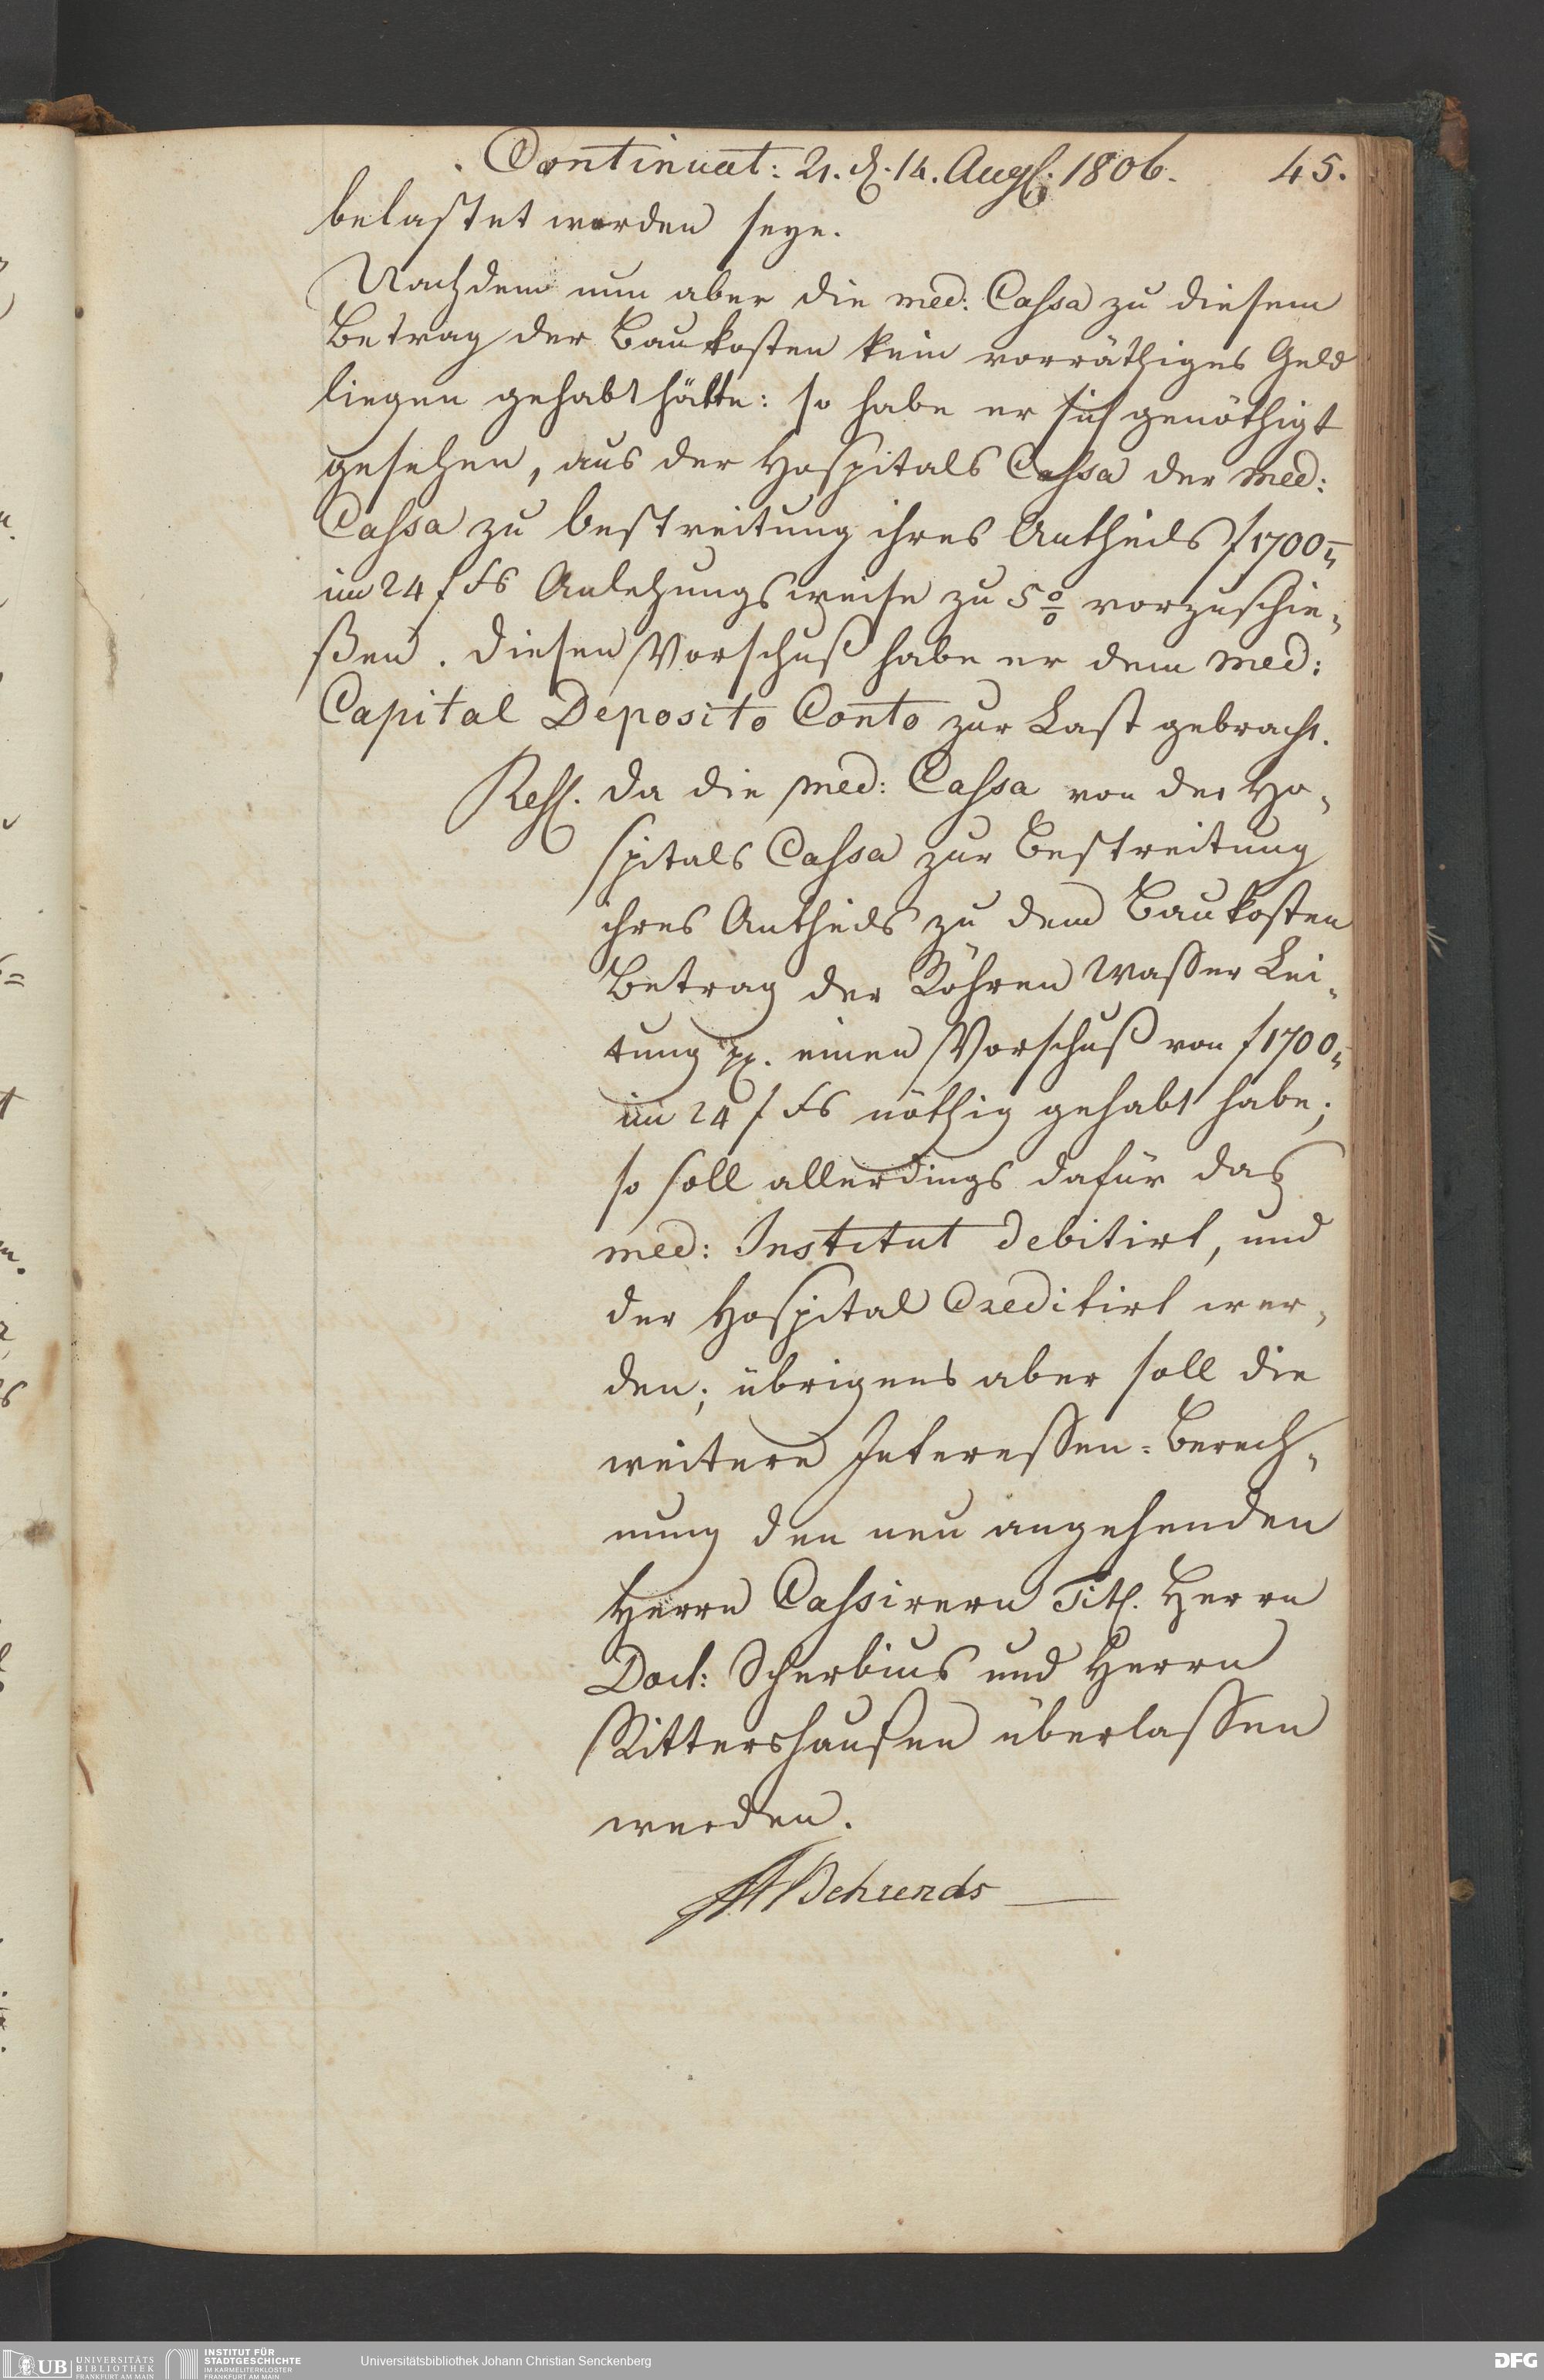 Continuat: 21. d. 14. Augs: 1806. 45.
belastet worden seye.
Nachdem nun aber die med: Cassa zu diesem
Betrag der Baukosten kein vorräthiges Geld
liegen gehabt hätte: so habe er sich genöthigt
gesehen, aus der Hospitals Cassa der med:
Cassa zu Bestreitung ihres Antheils f 1700„-
im 24 f Fs Anlehungsweise zu 5 % vorzuschie„
ßen. Diesen Vorschuß habe er dem med:
Capital Deposito Conto zur Last gebracht.
Ress. Da die med: Cassa von der Ho„
spitals Cassa zur Bestreitung
ihres Antheils zu dem Baukosten
Betrag der Röhren Wasser Lei„
tung pp. einen Vorschuß von f 1700„-
im 24 f Fs nöthig gehabt habe;
so soll allerdings dafür das
med: Institut debitirt, und
der Hospital Creditirt wer„
den; übrigens aber soll die
weitere Interessen-Berech„
nung den neu angehenden
Herrn Cassirern Titl. Herrn
Doct: Scherbius und Herrn
Rittershausen überlassen
werden.
Behrends
UB UNIVERSITÄTS BIBLIOTHEK FRANKFURT AM MAIN
INSTITUT FÜR STADTGESCHICHTE IM KARMELITERKLOSTER FRANKFURT AM MAIN
Universitätsbibliothek Johann Christian Senckenberg
DFG